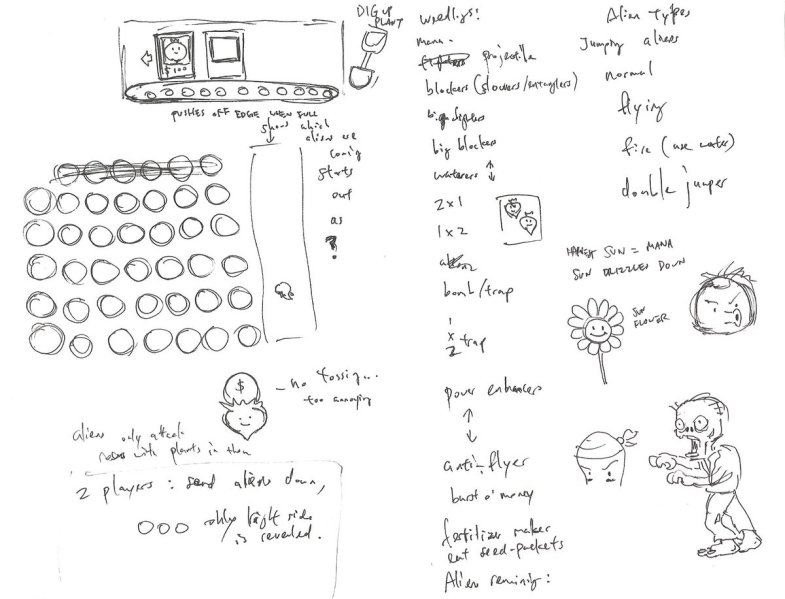 DIG UP
PLANT
$100
PUSHES OFF EDGE WHEN FULL
shows which
aliens are
coming
starts
out
as
?
$
- no tossing...
too annoying
aliens only attack
rows with plants in them
2 players: send aliens down,
only right side
is revealed.
Weedlings:
mana -
projectile
blockers (slowers/entanglers)
big blockers
waterers
2x1
1x2
bomb/trap
1
x
2 trap
power enhancers
anti-flyer
burst o' money
fertilizer maker
eat seed-packets
Alien types
Jumping aliens
normal
flying
fire (use water)
double jumper
SUN = MANA
SUN DRIZZLES DOWN
SUN
FLOWER